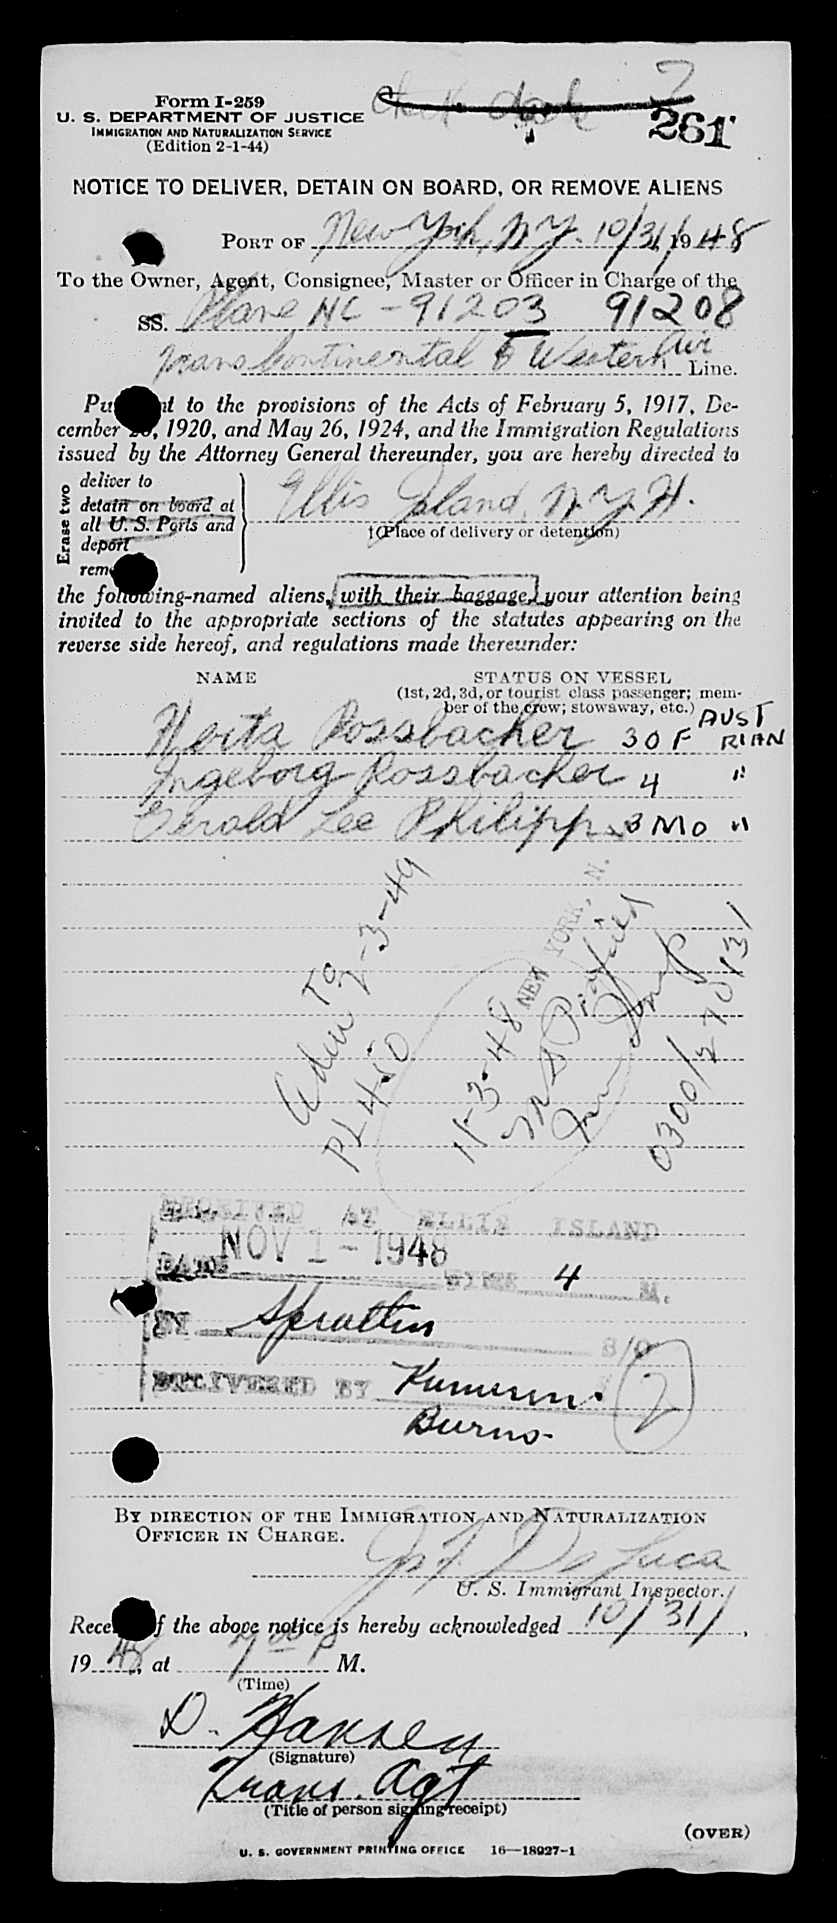 Form I-259
U. S. DEPARTMENT OF JUSTICE
IMMIGRATION AND NATURALIZATION SERVICE
(Edition 2-1-44)
261
NOTICE TO DELIVER, DETAIN ON BOARD, OR REMOVE ALIENS
PORT OF New York, N.Y. 10/31/1948
To the Owner, Agent, Consignee, Master or Officer in Charge of the
SS. Plane NC-91203 91208
Trans Continental & Western Air Line.
Pu nt to the provisions of the Acts of February 5, 1917, De-
cember 26, 1920, and May 26, 1924, and the Immigration Regulations
issued by the Attorney General thereunder, you are hereby directed to
Erase two
deliver to
detain on board at
all U. S. Ports and
deport
rem
Ellis Island, N.Y.H.
†(Place of delivery or detention)
the following-named aliens, with their baggage, your attention being
invited to the appropriate sections of the statutes appearing on the
reverse side hereof, and regulations made thereunder:
NAME STATUS ON VESSEL
(1st, 2d, 3d, or tourist class passenger; mem-
ber of the crew; stowaway, etc.)
Herta Rossbacher 30 F AUSTRIAN
Ingeborg Rossbacher 4 "
Gerald Lee Philipp 3 MO "
Adm TO
2-3-49
PL 450
NEW YORK, N.
11-3-48
0300/270131
RECEIVED AT ELLIS ISLAND
DATE NOV 1 - 1948 TIME 4 M.
BY Sprattin S/O
DELIVERED BY
Burns
2
BY DIRECTION OF THE IMMIGRATION AND NATURALIZATION
OFFICER IN CHARGE.
Jos. F. De Luca
U. S. Immigrant Inspector.
Rece f the above notice is hereby acknowledged 10/31/,
1948, at 7 00 P M.
(Time)
D. Hansen
(Signature)
Trans. Agt
(Title of person signing receipt)
(OVER)
U. S. GOVERNMENT PRINTING OFFICE 16—18927-1